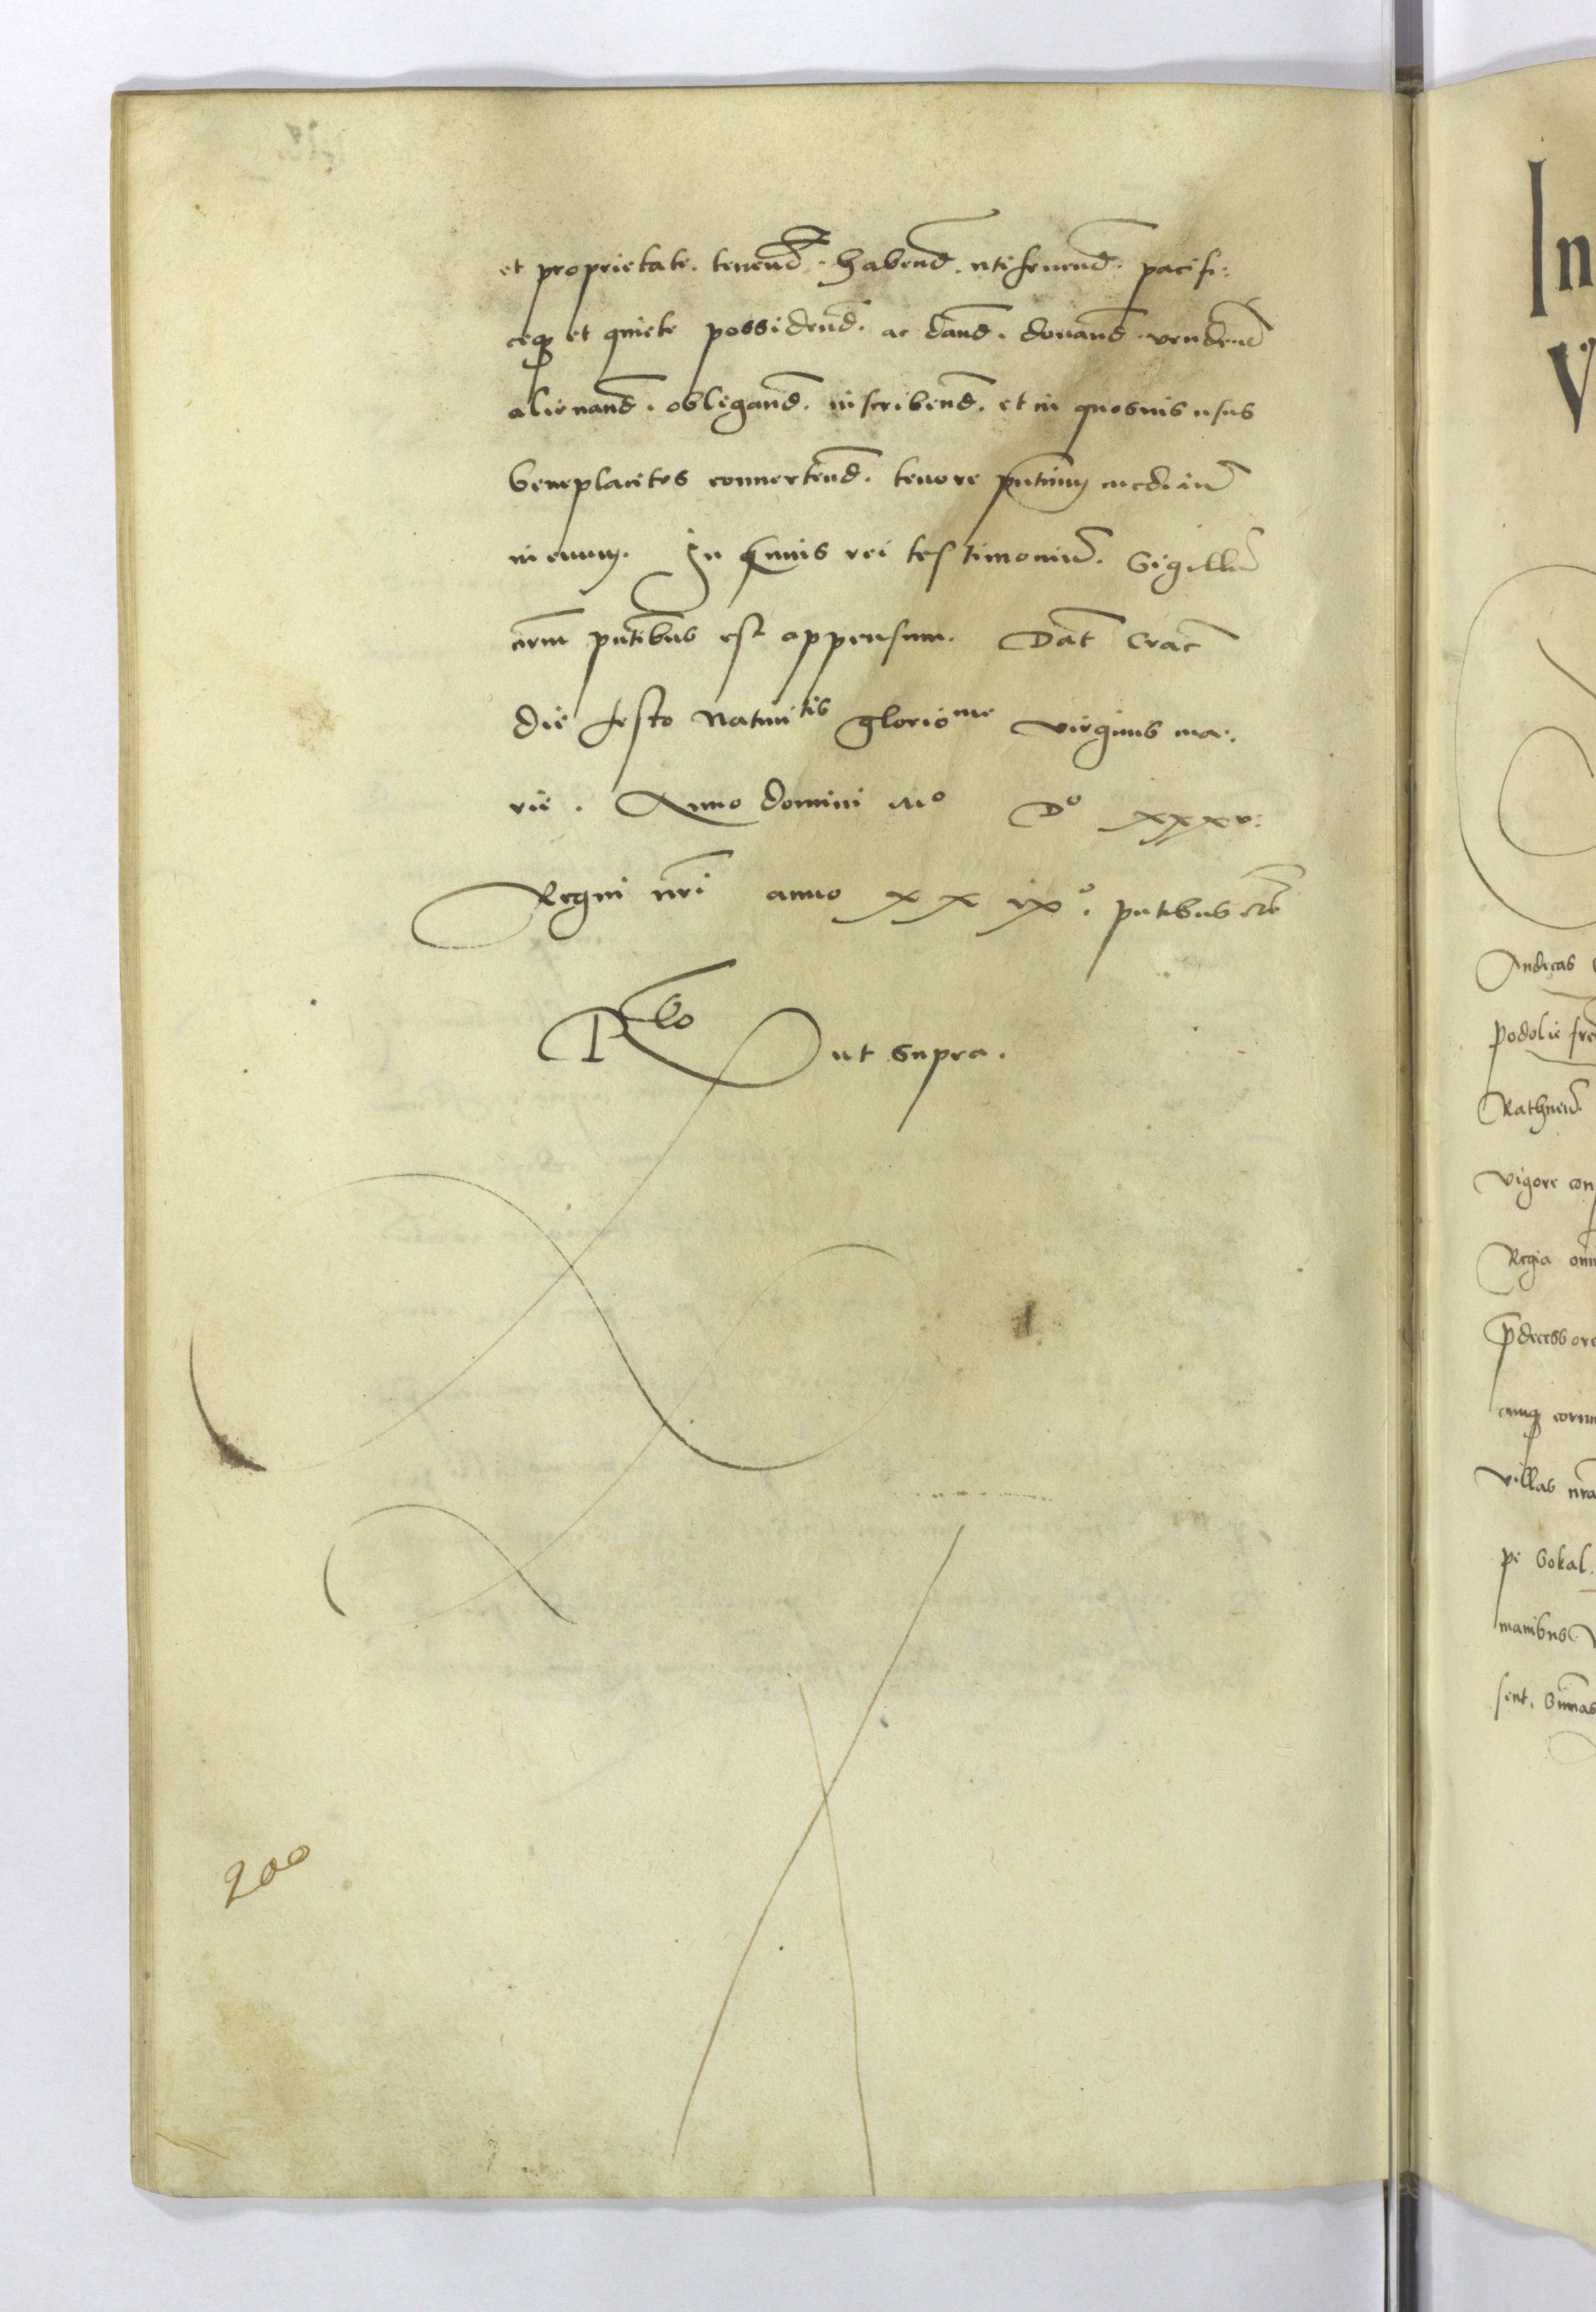 et proprietate. tenend. habend. utifruend. pacifi:
ceq et quiete possidend. ac dand. donand. vendend
alienand. obligand. inscribend. et in quosuis usus
beneplacitos conuertend. tenore pntium median
in euum. In cuius rei testimoniu. Sigillu
nrm pntibus est appensum. Dat Crac
die festo Natiuitis glorio virginis ma:
rie. Anno domini Mo Do xxxv:
Regni nri anno xx ixo. pntibus
Rlo ut supra.
200
In
V
Andreas
podolie
Rathnen.
vigore con
Regia
pdecessore
cumq
villas nra
pe Sokal.
manibus
sent.